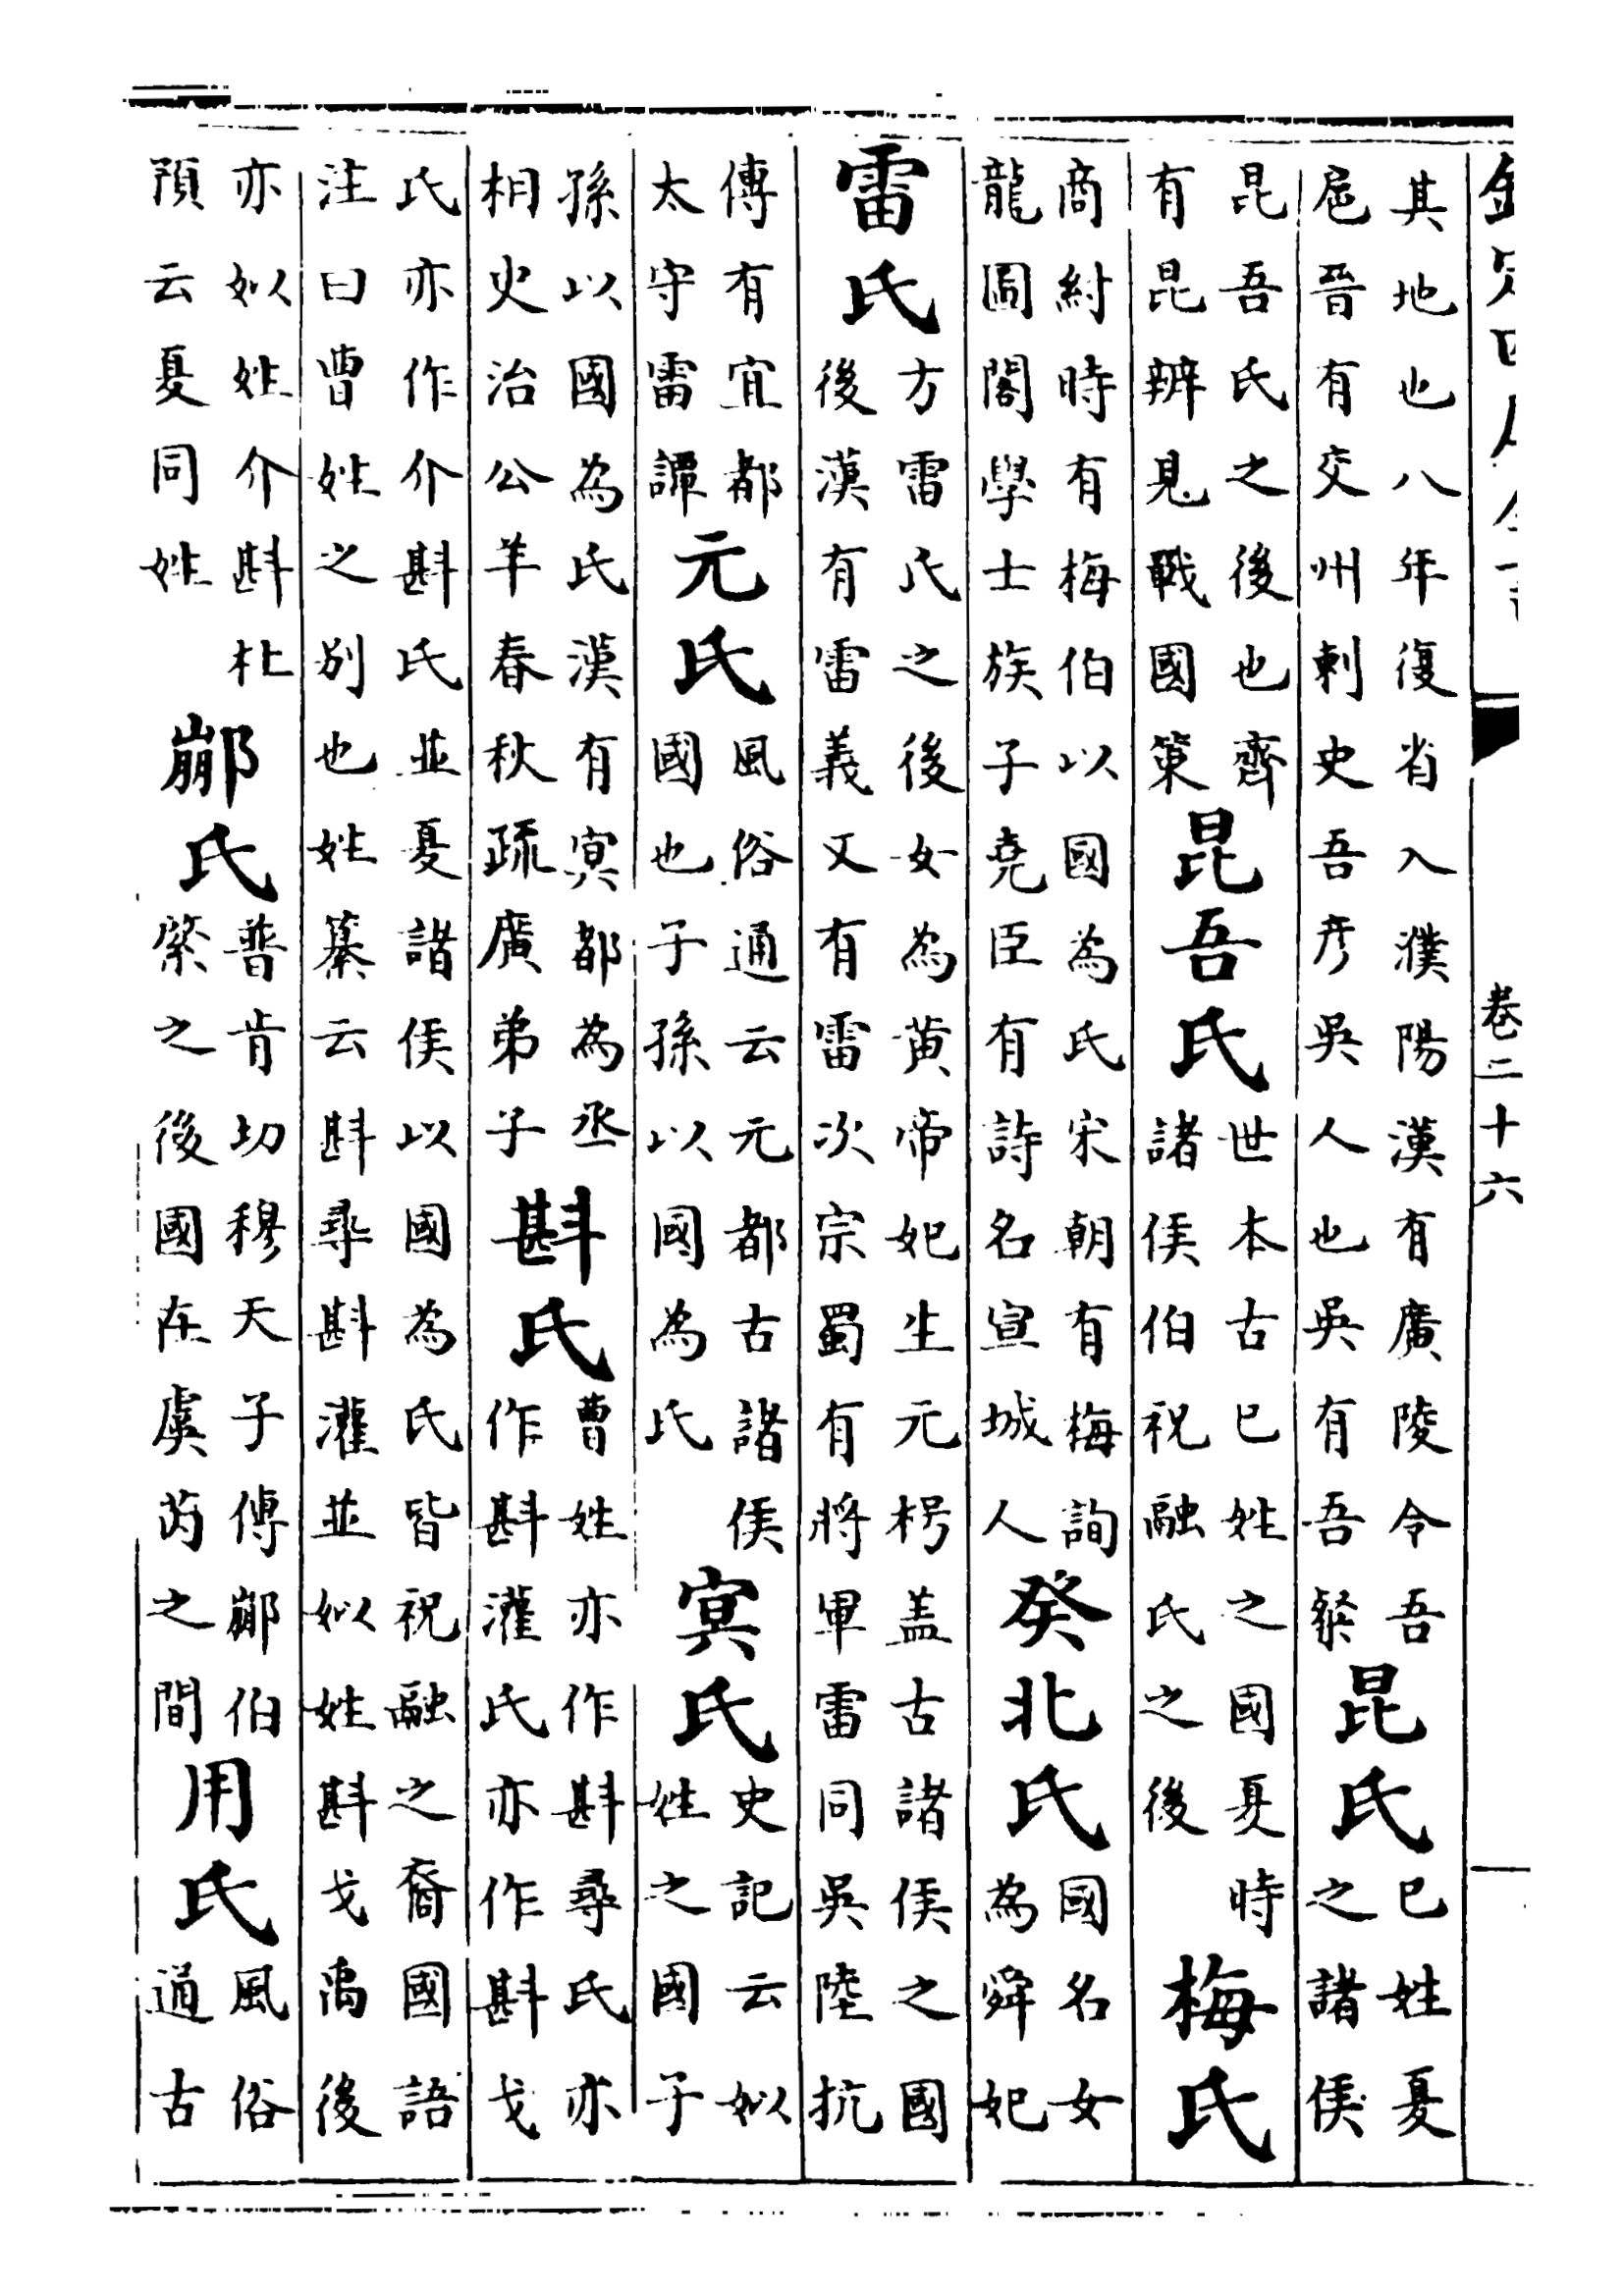 欽定四庫全書 卷二十六
其地也八年復省入濮陽漢有廣陵令吾
扈晉有交州刺史吾彦吳人也吳有吾粲
昆氏
已姓夏
之諸侯
昆吾氏之後也齊
有昆辨見戰國策
昆吾氏
世本古已姓之國夏時
諸侯伯祝融氏之後
梅氏
商紂時有梅伯以國為氏宋朝有梅詢
龍圖閣學士族子堯臣有詩名宣城人
癸北氏
國名女
為舜妃
雷氏
方雷氏之後女為黄帝妃生元枵盖古諸侯之國
後漢有雷義又有雷次宗蜀有將軍雷同吳陸抗
傳有宜都
太守雷譚
元氏
風俗通云元都古諸侯
國也子孫以國為氏
㝠氏
史記云姒
姓之國子
孫以國為氏漢有㝠都為丞
相史治公羊春秋疏廣弟子
斟氏
曹姓亦作斟尋氏亦
作斟灌氏亦作斟戈
氏亦作介斟氏並夏諸侯以國為氏皆祝融之裔國語
注曰曹姓之别也姓纂云斟尋斟灌並姒姓斟戈禹後
亦姒姓介斟杜
預云夏同姓
䣙氏
普肯切穆天子傳䣙伯
綮之後國在虞芮之間
用氏
風俗
通古